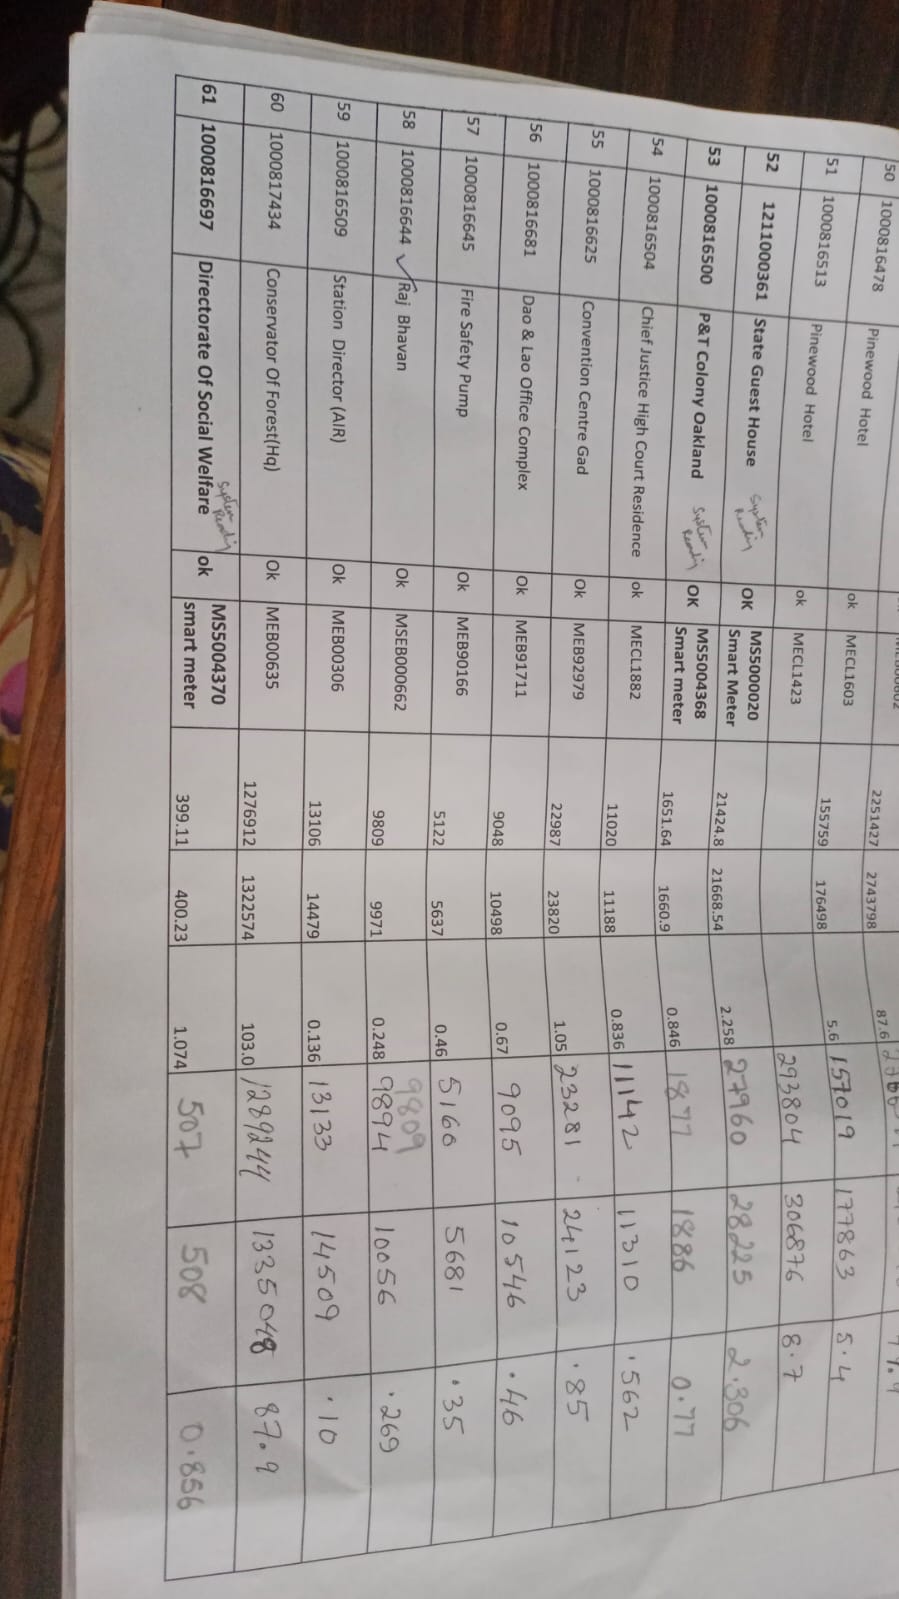 50 1000816478 Pinewood Hotel ok MECL1603 2251427 2743798 87.6
51 1000816513 Pinewood Hotel ok MECL1423 155759 176498 5.6 157019 177863 5.4
293804 306876 8.7
52 1211000361 State Guest House System Reading OK MS5000020 Smart Meter 21424.8 21668.54 2.258 27960 28225 2.306
53 1000816500 P&T Colony Oakland System Reading OK MS5004368 Smart meter 1651.64 1660.9 0.846 1877 1886 0.77
54 1000816504 Chief Justice High Court Residence ok MECL1882 11020 11188 0.836 11142 11310 .562
55 1000816625 Convention Centre Gad Ok MEB92979 22987 23820 1.05 23281 24123 .85
56 1000816681 Dao & Lao Office Complex Ok MEB91711 9048 10498 0.67 9095 10546 .46
57 1000816645 Fire Safety Pump Ok MEB90166 5122 5637 0.46 5166 5681 .35
58 1000816644 Raj Bhavan Ok MSEB000662 9809 9971 0.248 9809 9894 10056 .269
59 1000816509 Station Director (AIR) Ok MEB00306 13106 14479 0.136 13133 14509 .10
60 1000817434 Conservator Of Forest(Hq) Ok MEB00635 1276912 1322574 103.0 1289244 1335048 87.9
61 1000816697 Directorate Of Social Welfare System Reading ok MS5004370 smart meter 399.11 400.23 1.074 507 508 0.856